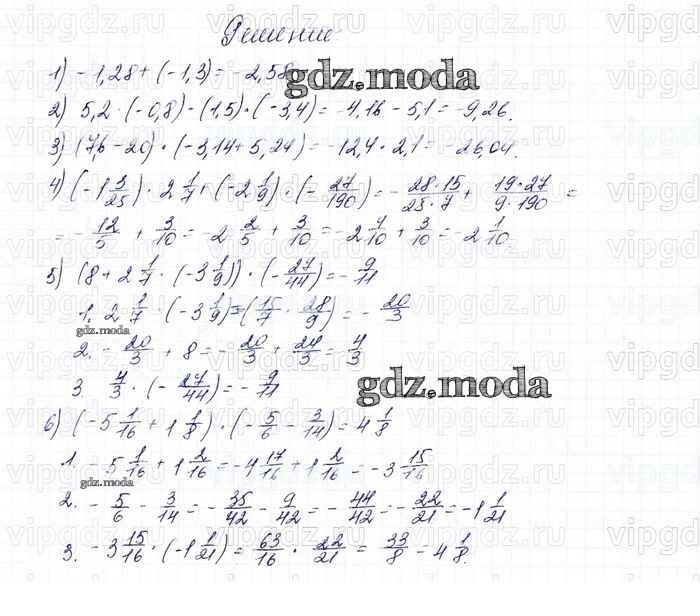 Решение
1) -1,28 + (-1,3) = -2,58
2) 5,2 · (-0,8) - (1,5) · (-3,4) = -4,16 - 5,1 = -9,26.
3) (7,6 - 20) · (-3,14 + 5,24) = -12,4 · 2,1 = -26,04.
4) (-1 3/25) · 2 1/7 + (-2 1/9) · (- 27/190) = - 28·15/25·7 + 19·27/9·190 =
= - 12/5 + 3/10 = -2 2/5 + 3/10 = -2 4/10 + 3/10 = -2 1/10.
5) (8 + 2 1/7 · (-3 1/9)) · (- 27/44) = - 9/11
1. 2 1/7 · (-3 1/9) = (15/7 · 28/9) = - 20/3
2. - 20/3 + 8 = - 20/3 + 24/3 = 4/3
3. 4/3 · (- 27/44) = - 9/11
6) (-5 1/16 + 1 1/8) · (- 5/6 - 3/14) = 4 1/8
1. -5 1/16 + 1 2/16 = -4 17/16 + 1 2/16 = -3 15/16
2. - 5/6 - 3/14 = - 35/42 - 9/42 = - 44/42 = - 22/21 = -1 1/21
3. -3 15/16 · (-1 1/21) = 63/16 · 22/21 = 33/8 = 4 1/8.
gdz.moda
gdz.moda
gdz.moda
gdz.moda
vipgdz.ru